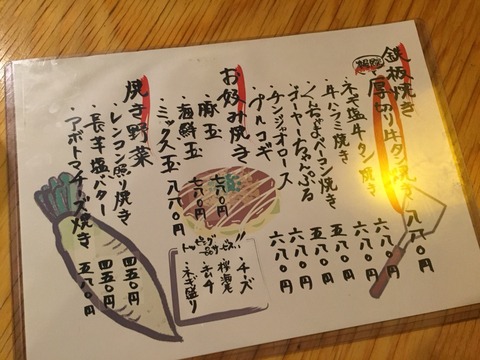 鉄板焼き
厚切り牛タン焼き 八八〇円
・ネギ塩牛タン焼き 六八〇円
・牛ハラミ焼き 六八〇円
・ぐちゃぐちゃベーコン焼き 五八〇円
・ゴーヤーちゃんぷる 五八〇円
・チンジャオロース 六八〇円
・プルコギ 六八〇円
お好み焼き
・豚玉 六八〇円
・海鮮玉 七八〇円
・ミックス玉 八八〇円
トッピング
一品サービス!!
・チーズ
・桜海老
・キムチ
・ネギ盛り
焼き野菜
・レンコン照り焼き 四五〇円
・長芋塩バター 四五〇円
・アボカドマヨチーズ焼き 五八〇円